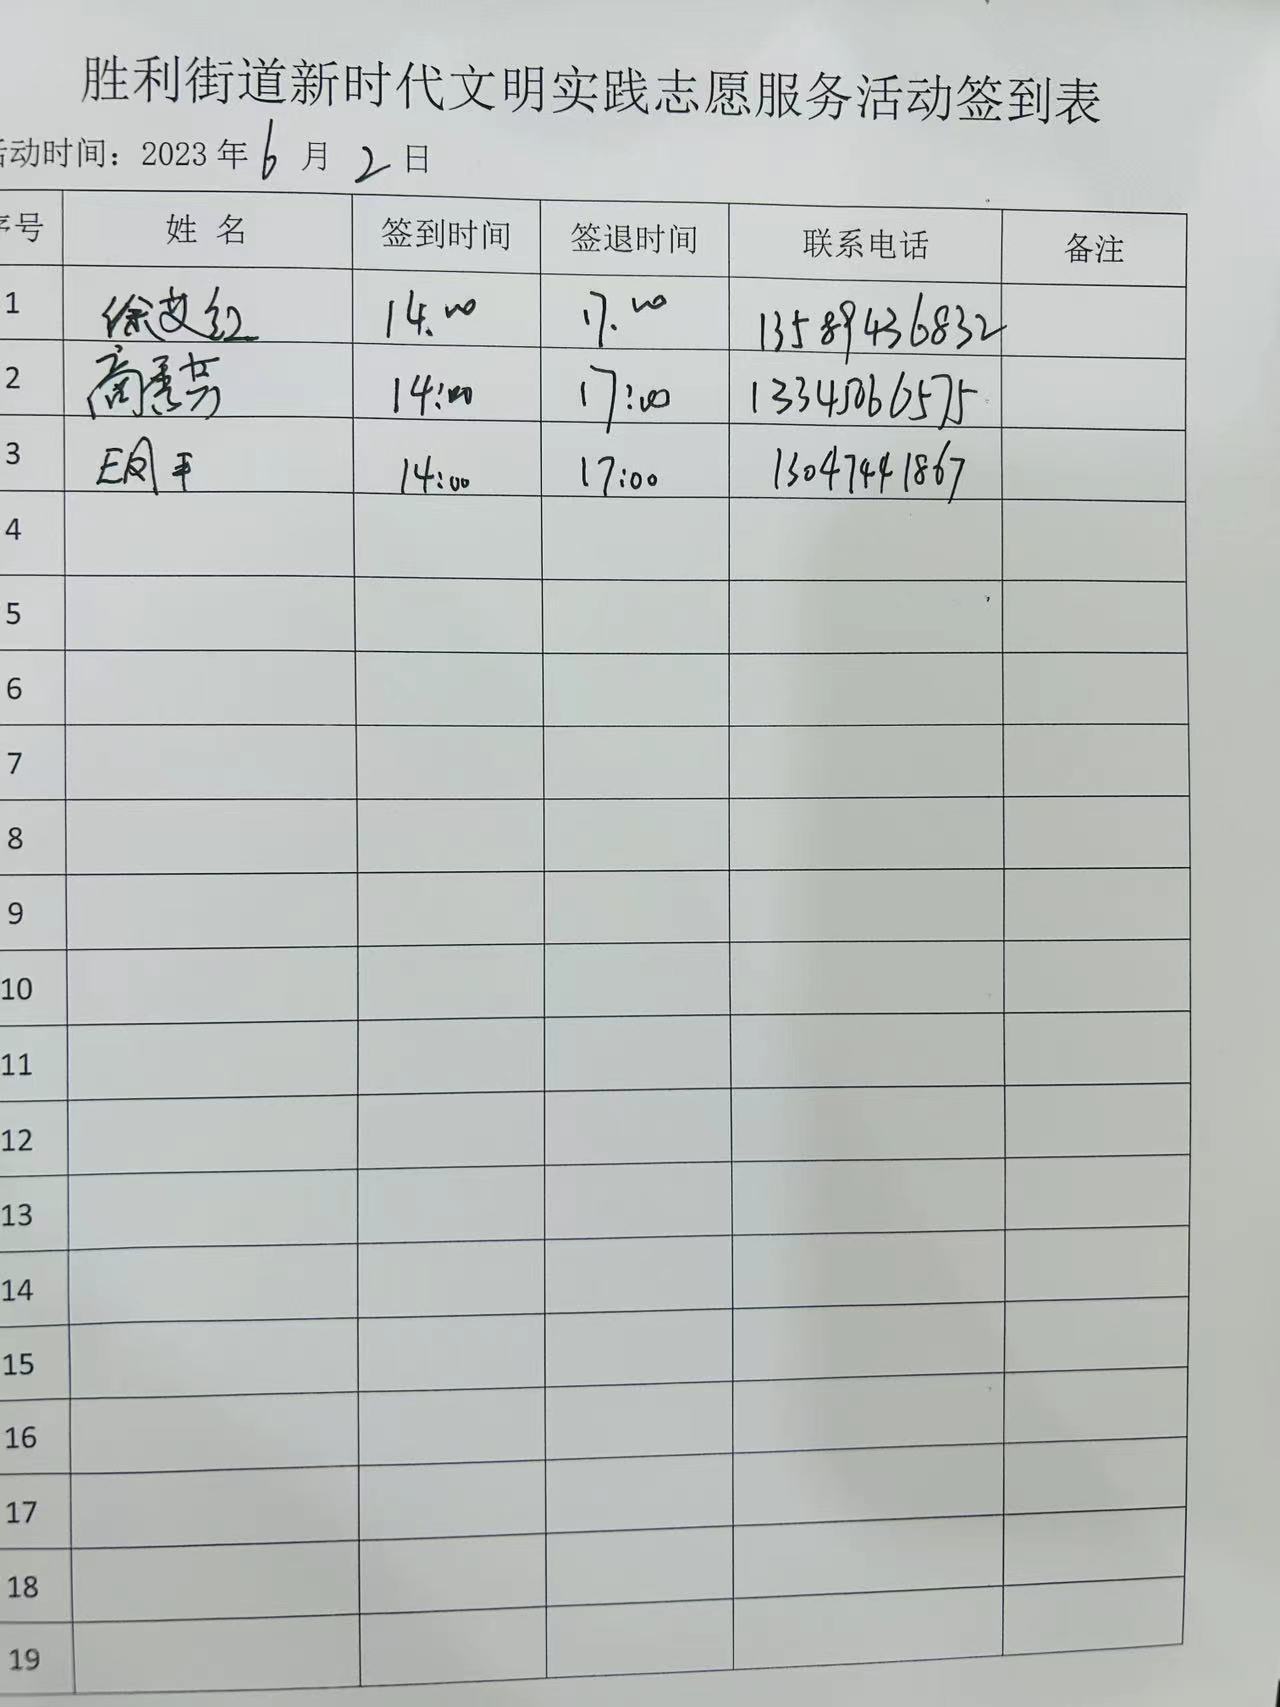 胜利街道新时代文明实践志愿服务活动签到表
活动时间：2023年6月2日
序号 姓名 签到时间 签退时间 联系电话 备注
1 徐艾红 14.00 17.00 13589436832
2 高 14:00 17:00 13345066575
3 王凤平 14:00 17:00 13047441867
4
5
6
7
8
9
10
11
12
13
14
15
16
17
18
19